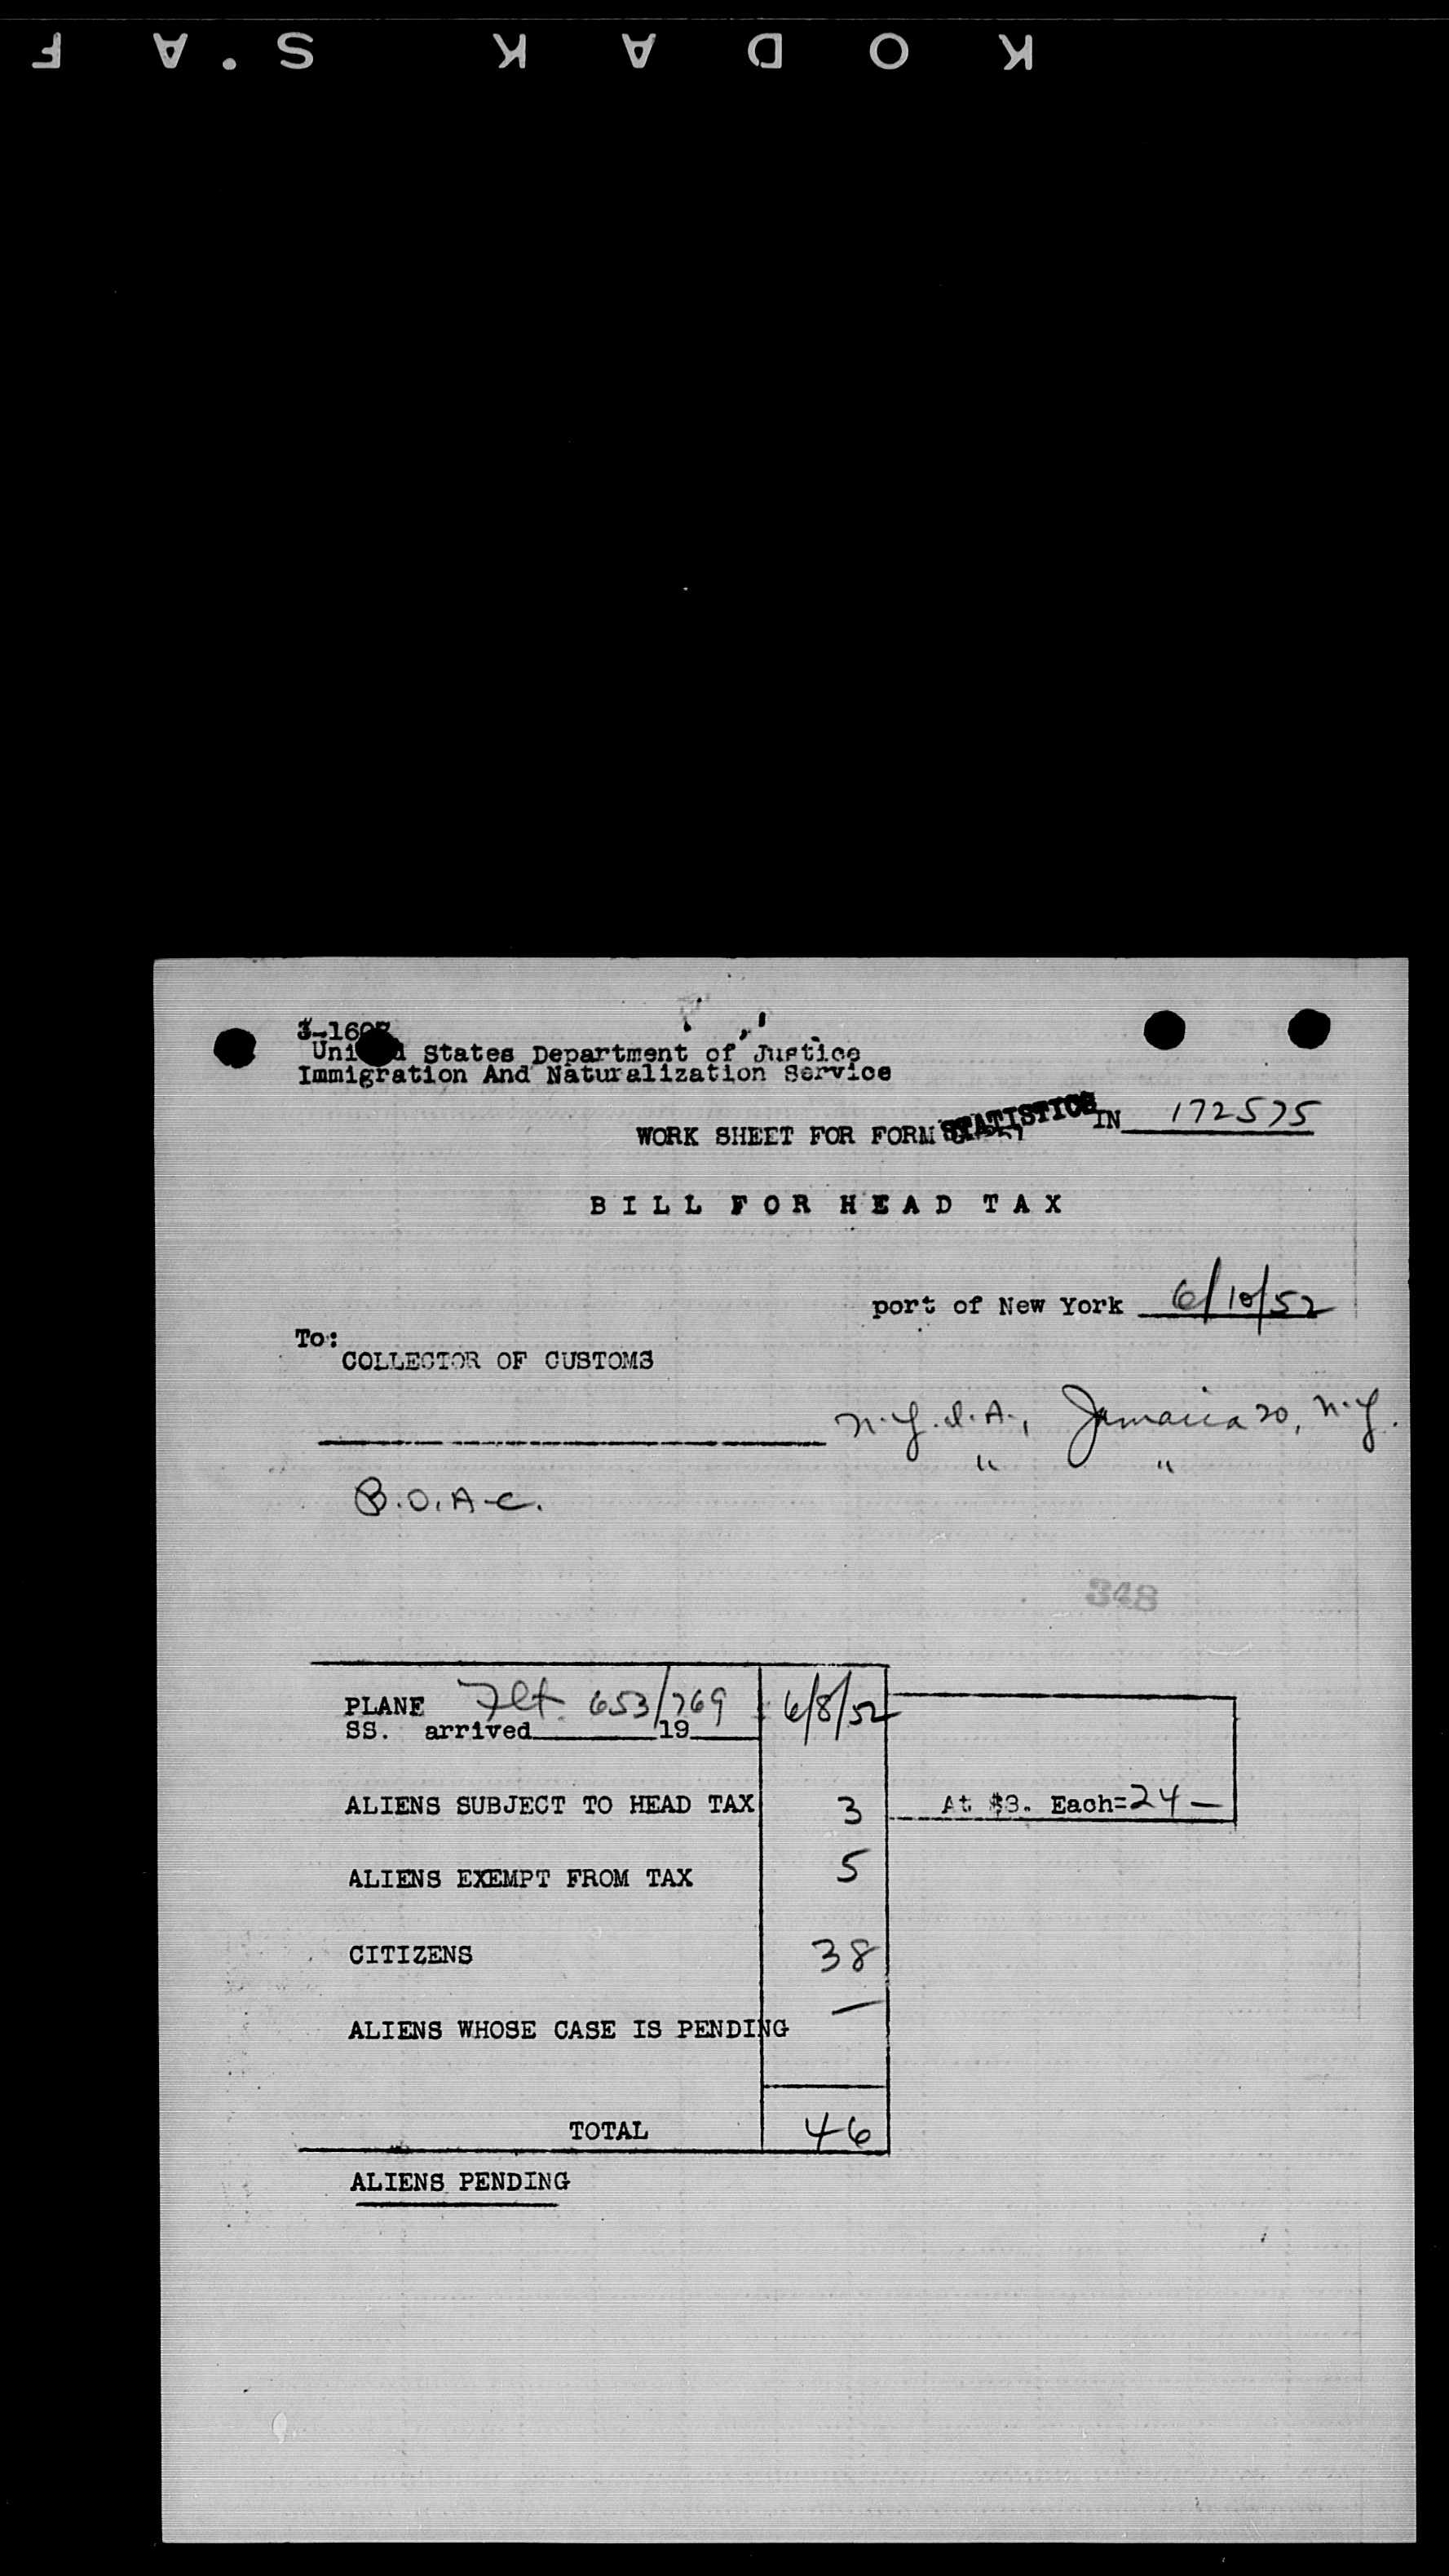 KODAK S.A F
3-1607
United States Department of Justice
Immigration And Naturalization Service
WORK SHEET FOR FORM STATISTICS IN 172575
BILL FOR HEAD TAX
port of New York 6/10/52
To:
COLLECTOR OF CUSTOMS
N.Y.I.A., Jamaica 20, N.Y.
" "
B.O.A.C.
348
PLANE Flt. 653/769 6/8/52
SS. arrived 19
ALIENS SUBJECT TO HEAD TAX 3 At $8. Each=24—
ALIENS EXEMPT FROM TAX 5
CITIZENS 38
ALIENS WHOSE CASE IS PENDING —
TOTAL 46
ALIENS PENDING